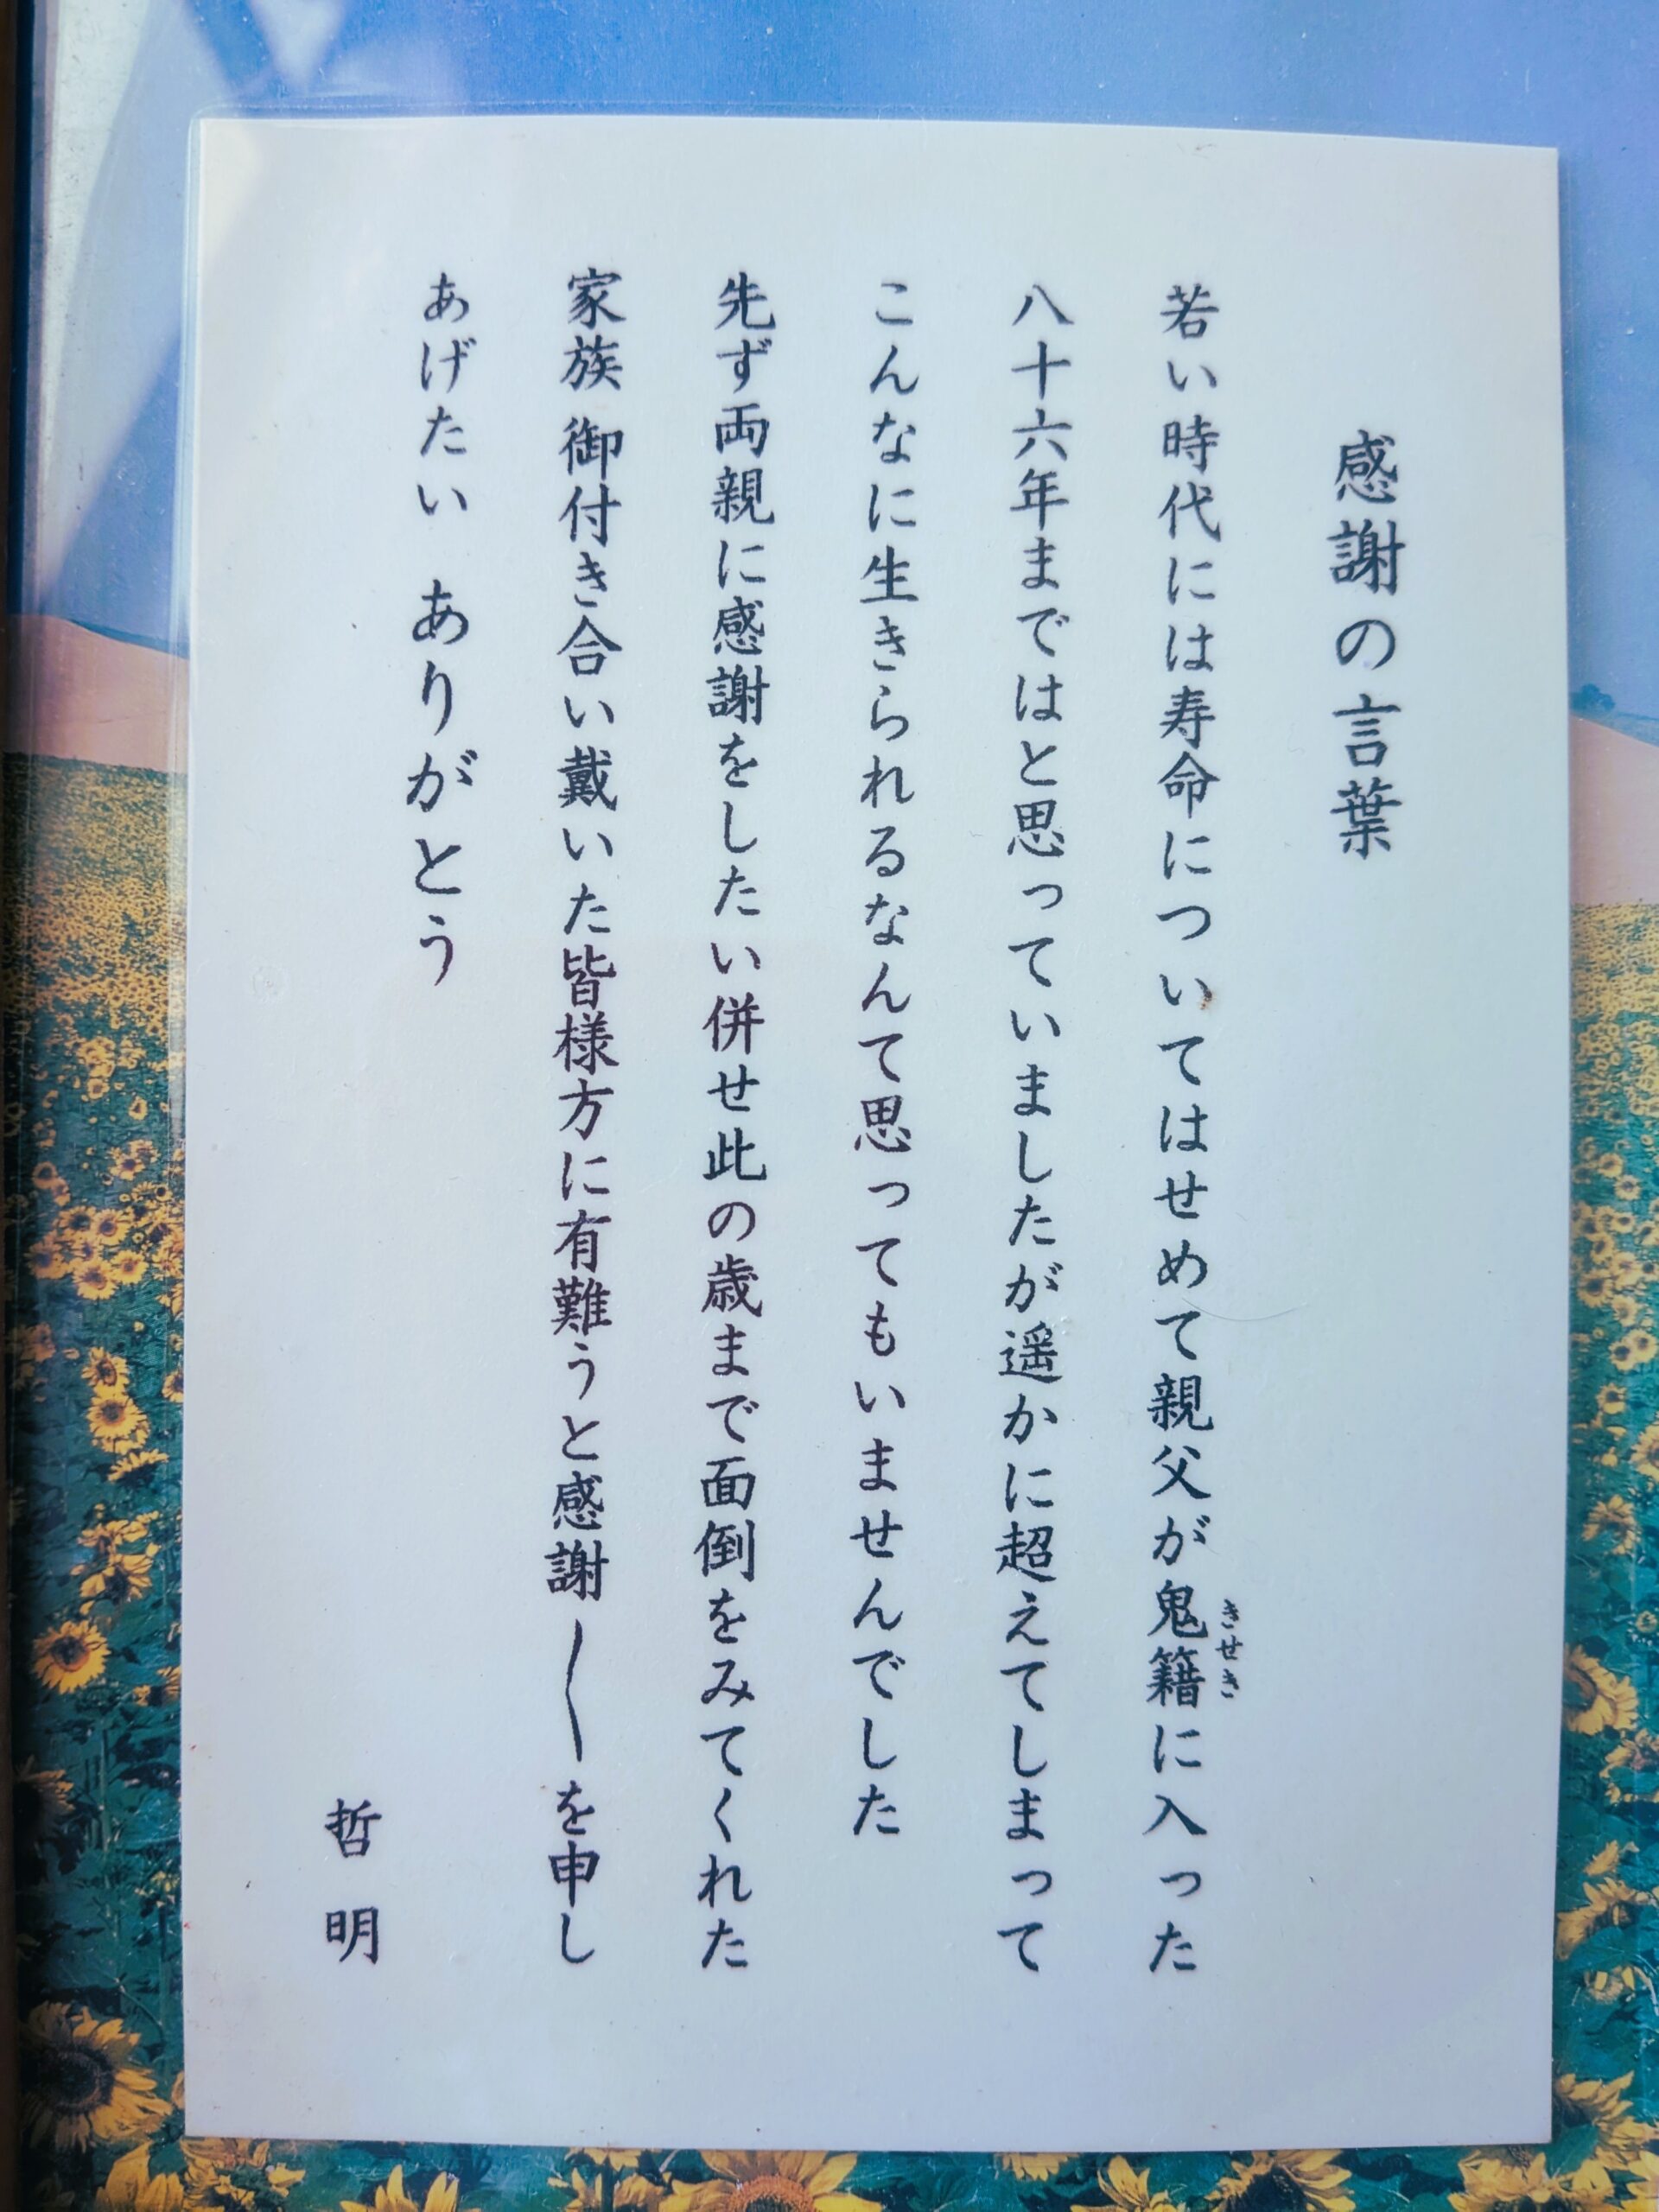 感謝の言葉
若い時代には寿命についてはせめて親父が鬼籍に入った
きせき
八十六年まではと思っていましたが遥かに超えてしまって
こんなに生きられるなんて思ってもいませんでした
先ず両親に感謝をしたい併せ此の歳まで面倒をみてくれた
家族 御付き合い戴いた皆様方に有難うと感謝〳〵を申し
あげたい ありがとう
哲明